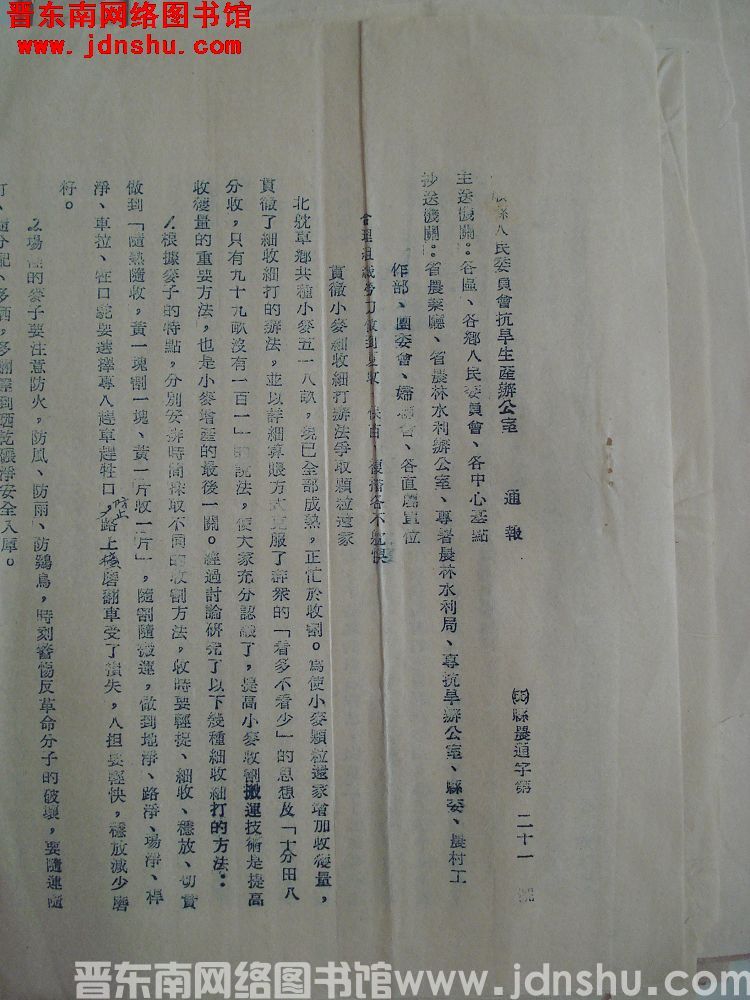 晋东南网络图书馆
www.jdnshu.com
縣人民委員會抗旱生產辦公室 通報 縣農通字第二十一號
主送機關：各區、各鄉人民委員會、各中心基點
抄送機關：省農業廳、省農林水利辦公室、專署農林水利局、專抗旱辦公室、縣委、農村工
作部、團委會、婦聯會、各直屬單位
合理組織勞力做到夏收 保苗 復播各不耽悞
貫徹小麥細收細打辦法爭取顆粒還家
北耽車鄉共種小麥五一八畝，現已全部成熟，正忙於收割。為使小麥顆粒還家增加收穫量，
貫徹了細收細打的辦法，並以詳細算賬方式克服了群衆的「看多不看少」的思想及「十分田八
分收，只有九十九畝沒有一百一」的說法，使大家充分認識了，提高小麥收割搬運技術是提高
收穫量的重要方法，也是小麥增產的最後一關。經過討論研究了以下幾種細收細打的方法：
1.根據麥子的特點，分別安排時間採取不同的收割方法，收時要輕捉、細收、穩放、切實
做到「隨熟隨收，黃一塊割一塊、黃一片收一片」，隨割隨搬運，做到地淨、路淨、場淨、稈
淨、車拉、牲口駝要選擇專人趕車趕牲口，防止路上磨翻車受了損失，人担要輕快，穩放減少磨
籽。
2.場裡的麥子要注意防火，防風、防雨、防鷄鳥，時刻警惕反革命分子的破壞，要隨運隨
打、隨分配、多晒，多翻群到晒乾碾淨安全入庫。
晋东南网络图书馆www.jdnshu.com